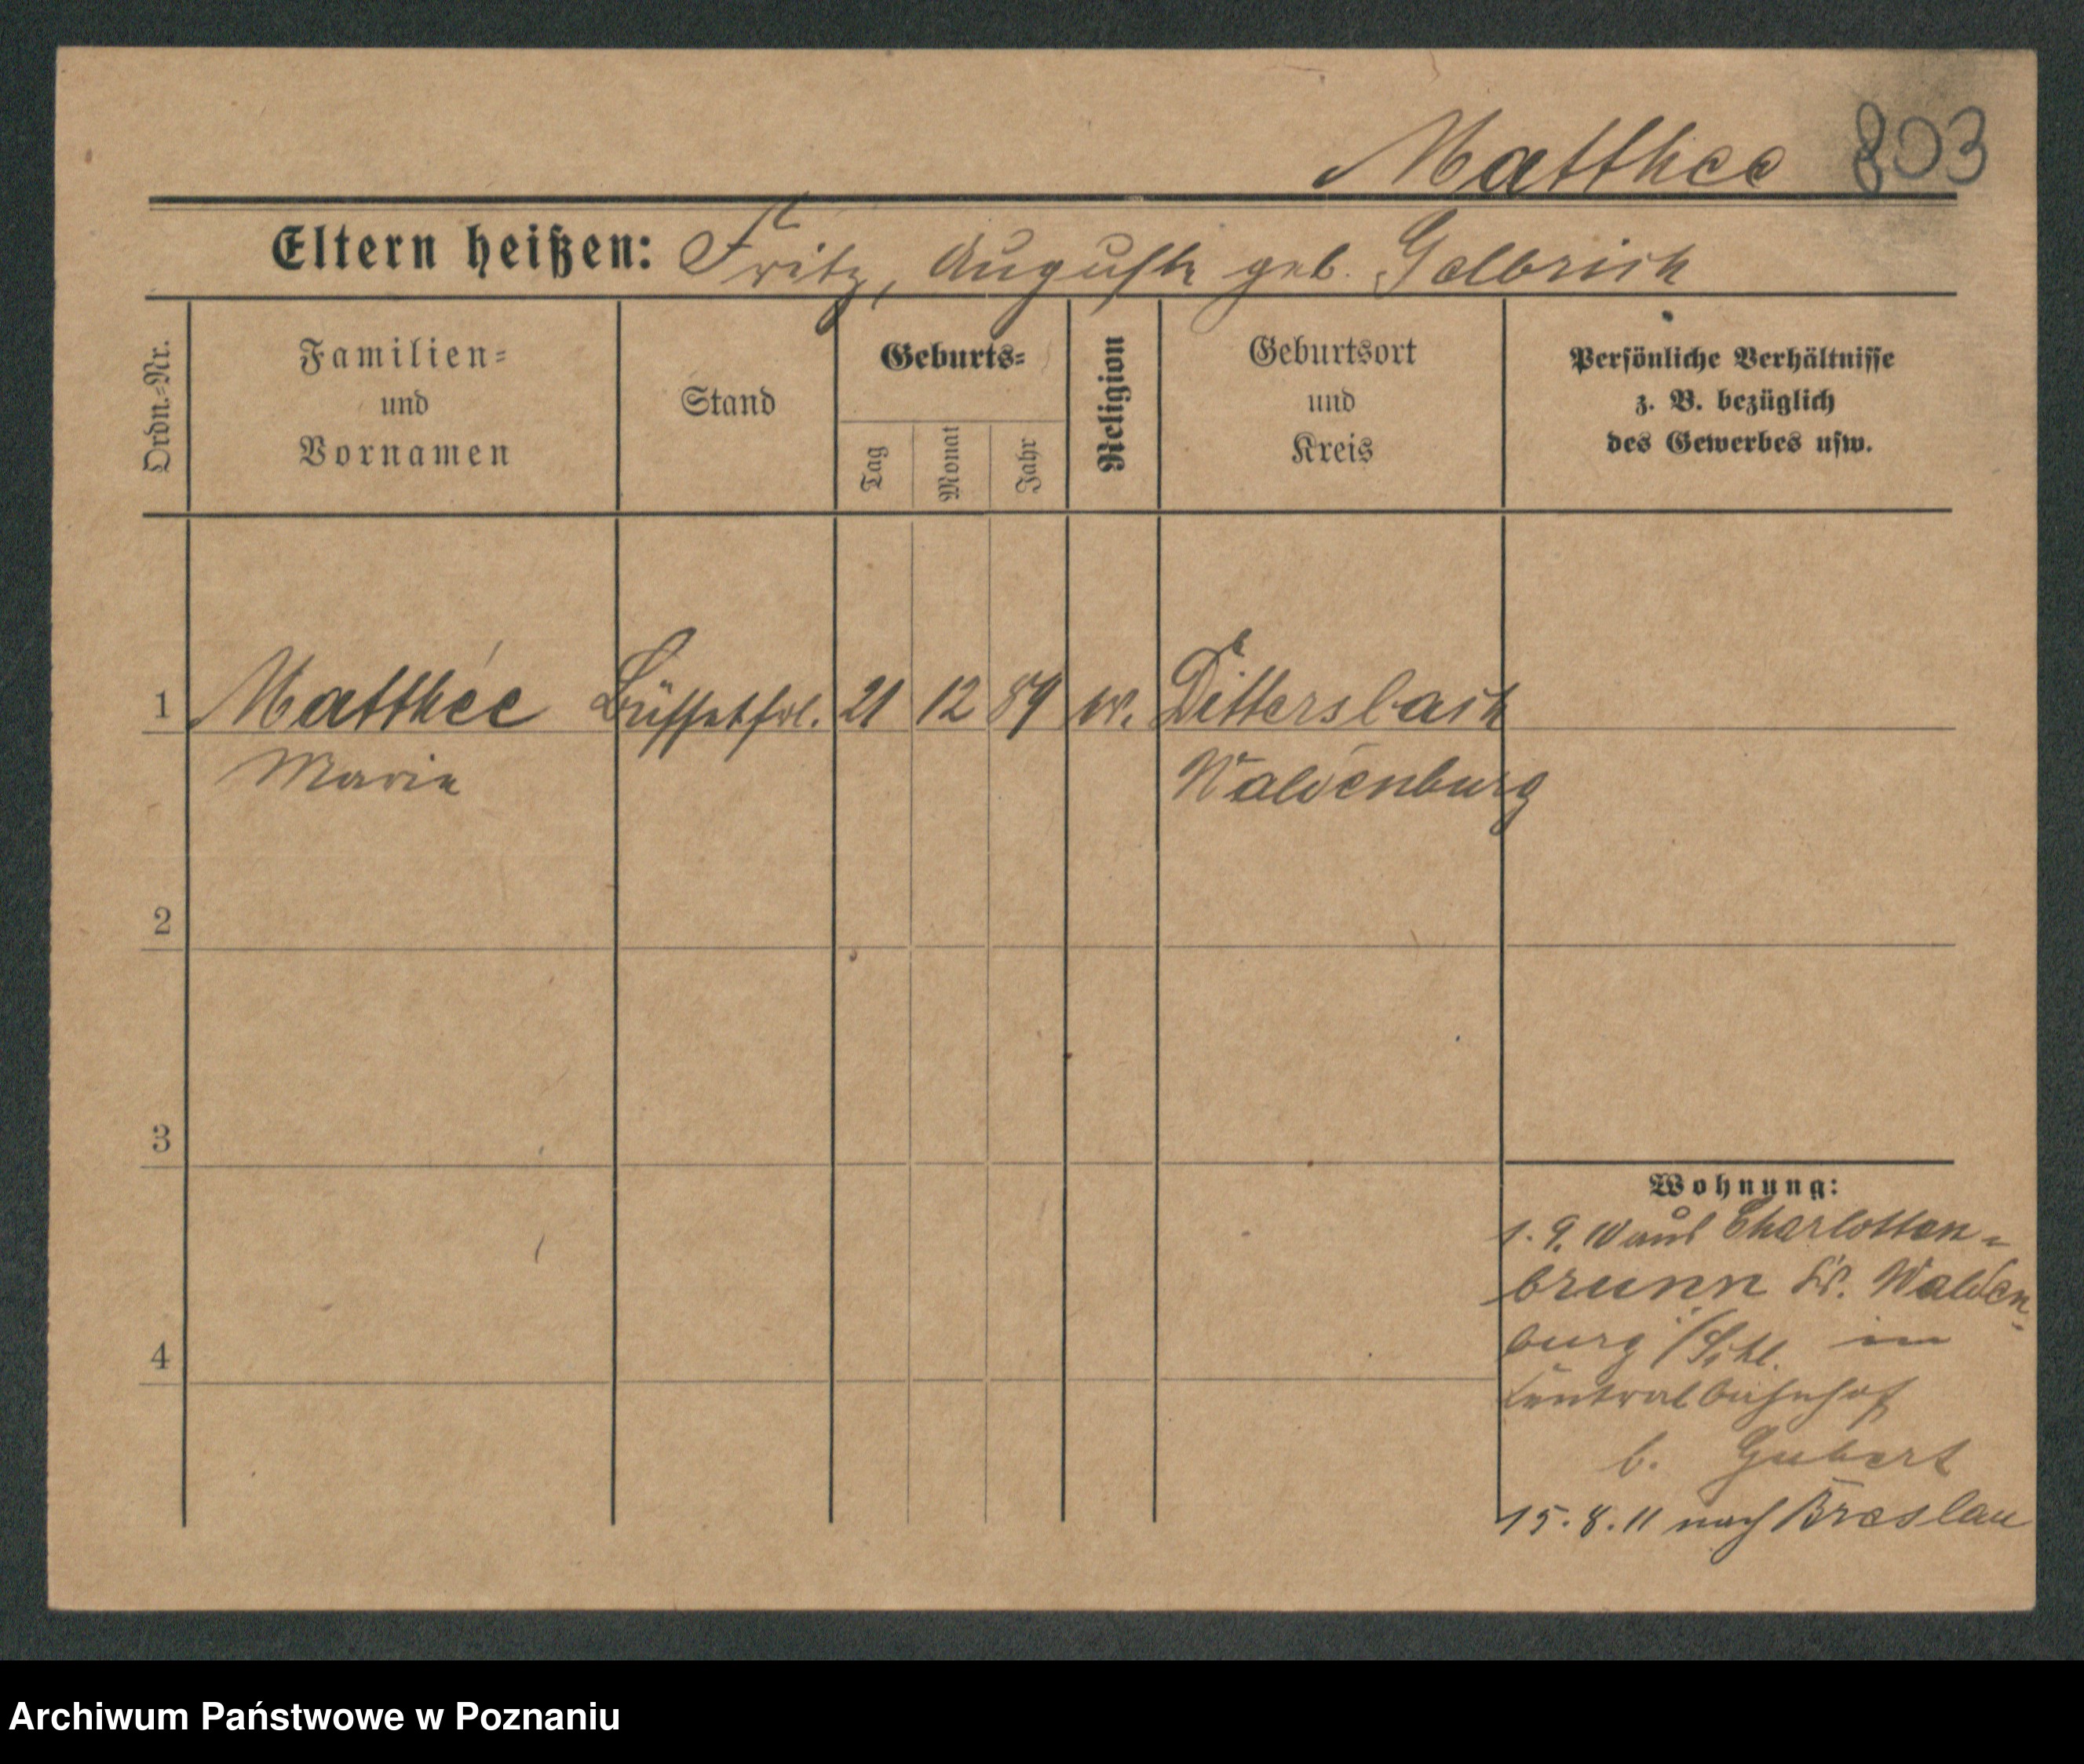 Matthee 803
Eltern heißen: Fritz, Auguste geb. Golbrich
Ordn.-Nr.
Familien-
und
Vornamen
Stand
Geburts-
Tag
Monat
Jahr
Religion
Geburtsort
und
Kreis
Persönliche Verhältnisse
z. B. bezüglich
des Gewerbes usw.
1 Matthée Büffetfrl. 21 12 89 Dittersbach
Marie Waldenburg
2
3
4
Wohnung:
1. 9. 10 aus Charlotten-
brunn Kr. Walden-
burg /Schl. im
Centralbahnhof
b. Gubert
15. 8. 11 nach Breslau
Archiwum Państwowe w Poznaniu